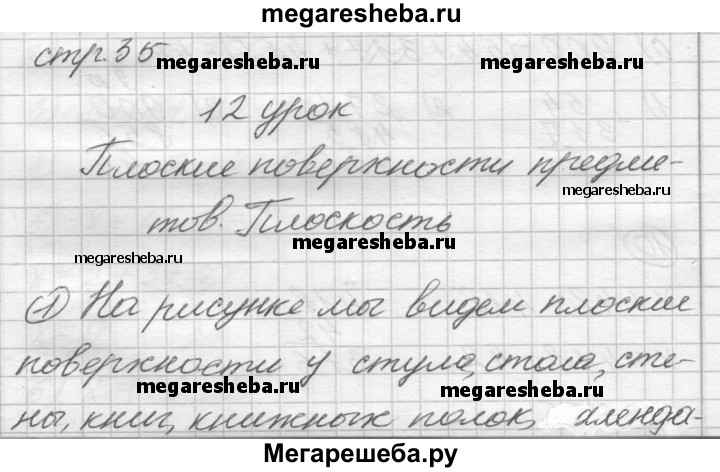 megaresheba.ru
стр. 35
megaresheba.ru
megaresheba.ru
12 урок
Плоские поверхности предме-
megaresheba.ru
тов. Плоскость
megaresheba.ru
megaresheba.ru
1 На рисунке мы видем плоские
поверхности у стула, стола, сте-
megaresheba.ru
megaresheba.ru
ны, книг, книжных полок,
Мегарешеба.ру